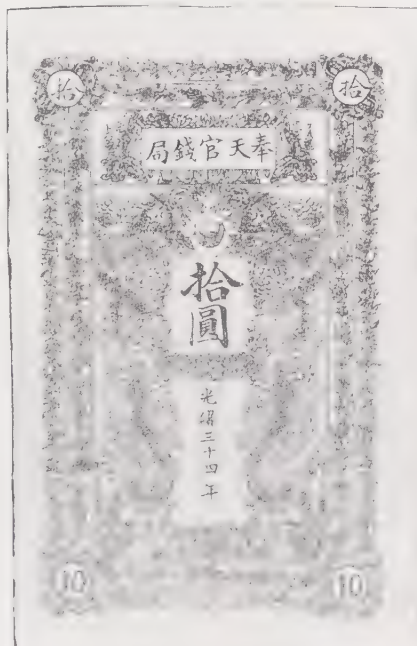 拾 拾
奉天官錢局
拾
圓
光緒三十四年
10 10